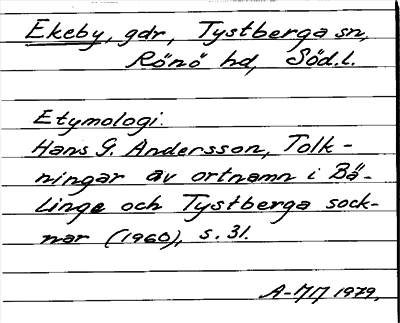 Ekeby, gdr, Tystberga sn,
Rönö hd, Söd.l.
Etymologi:
Hans G. Andersson, Tolk-
ningar av ortnamn i Bä-
linge och Tystberga sock-
nar (1960), s. 31.
A-MM 1979.